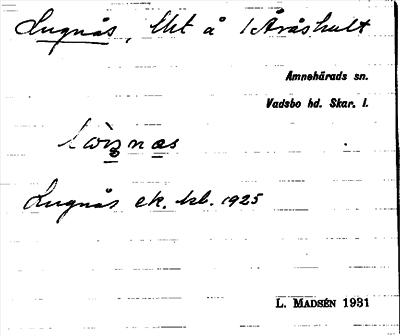 Lugnås, lht å 1 Åråshult
Amnehärads sn.
Vadsbo hd. Skar. l.
Lugnås ek. kb. 1925
L. MADSÉN 1931